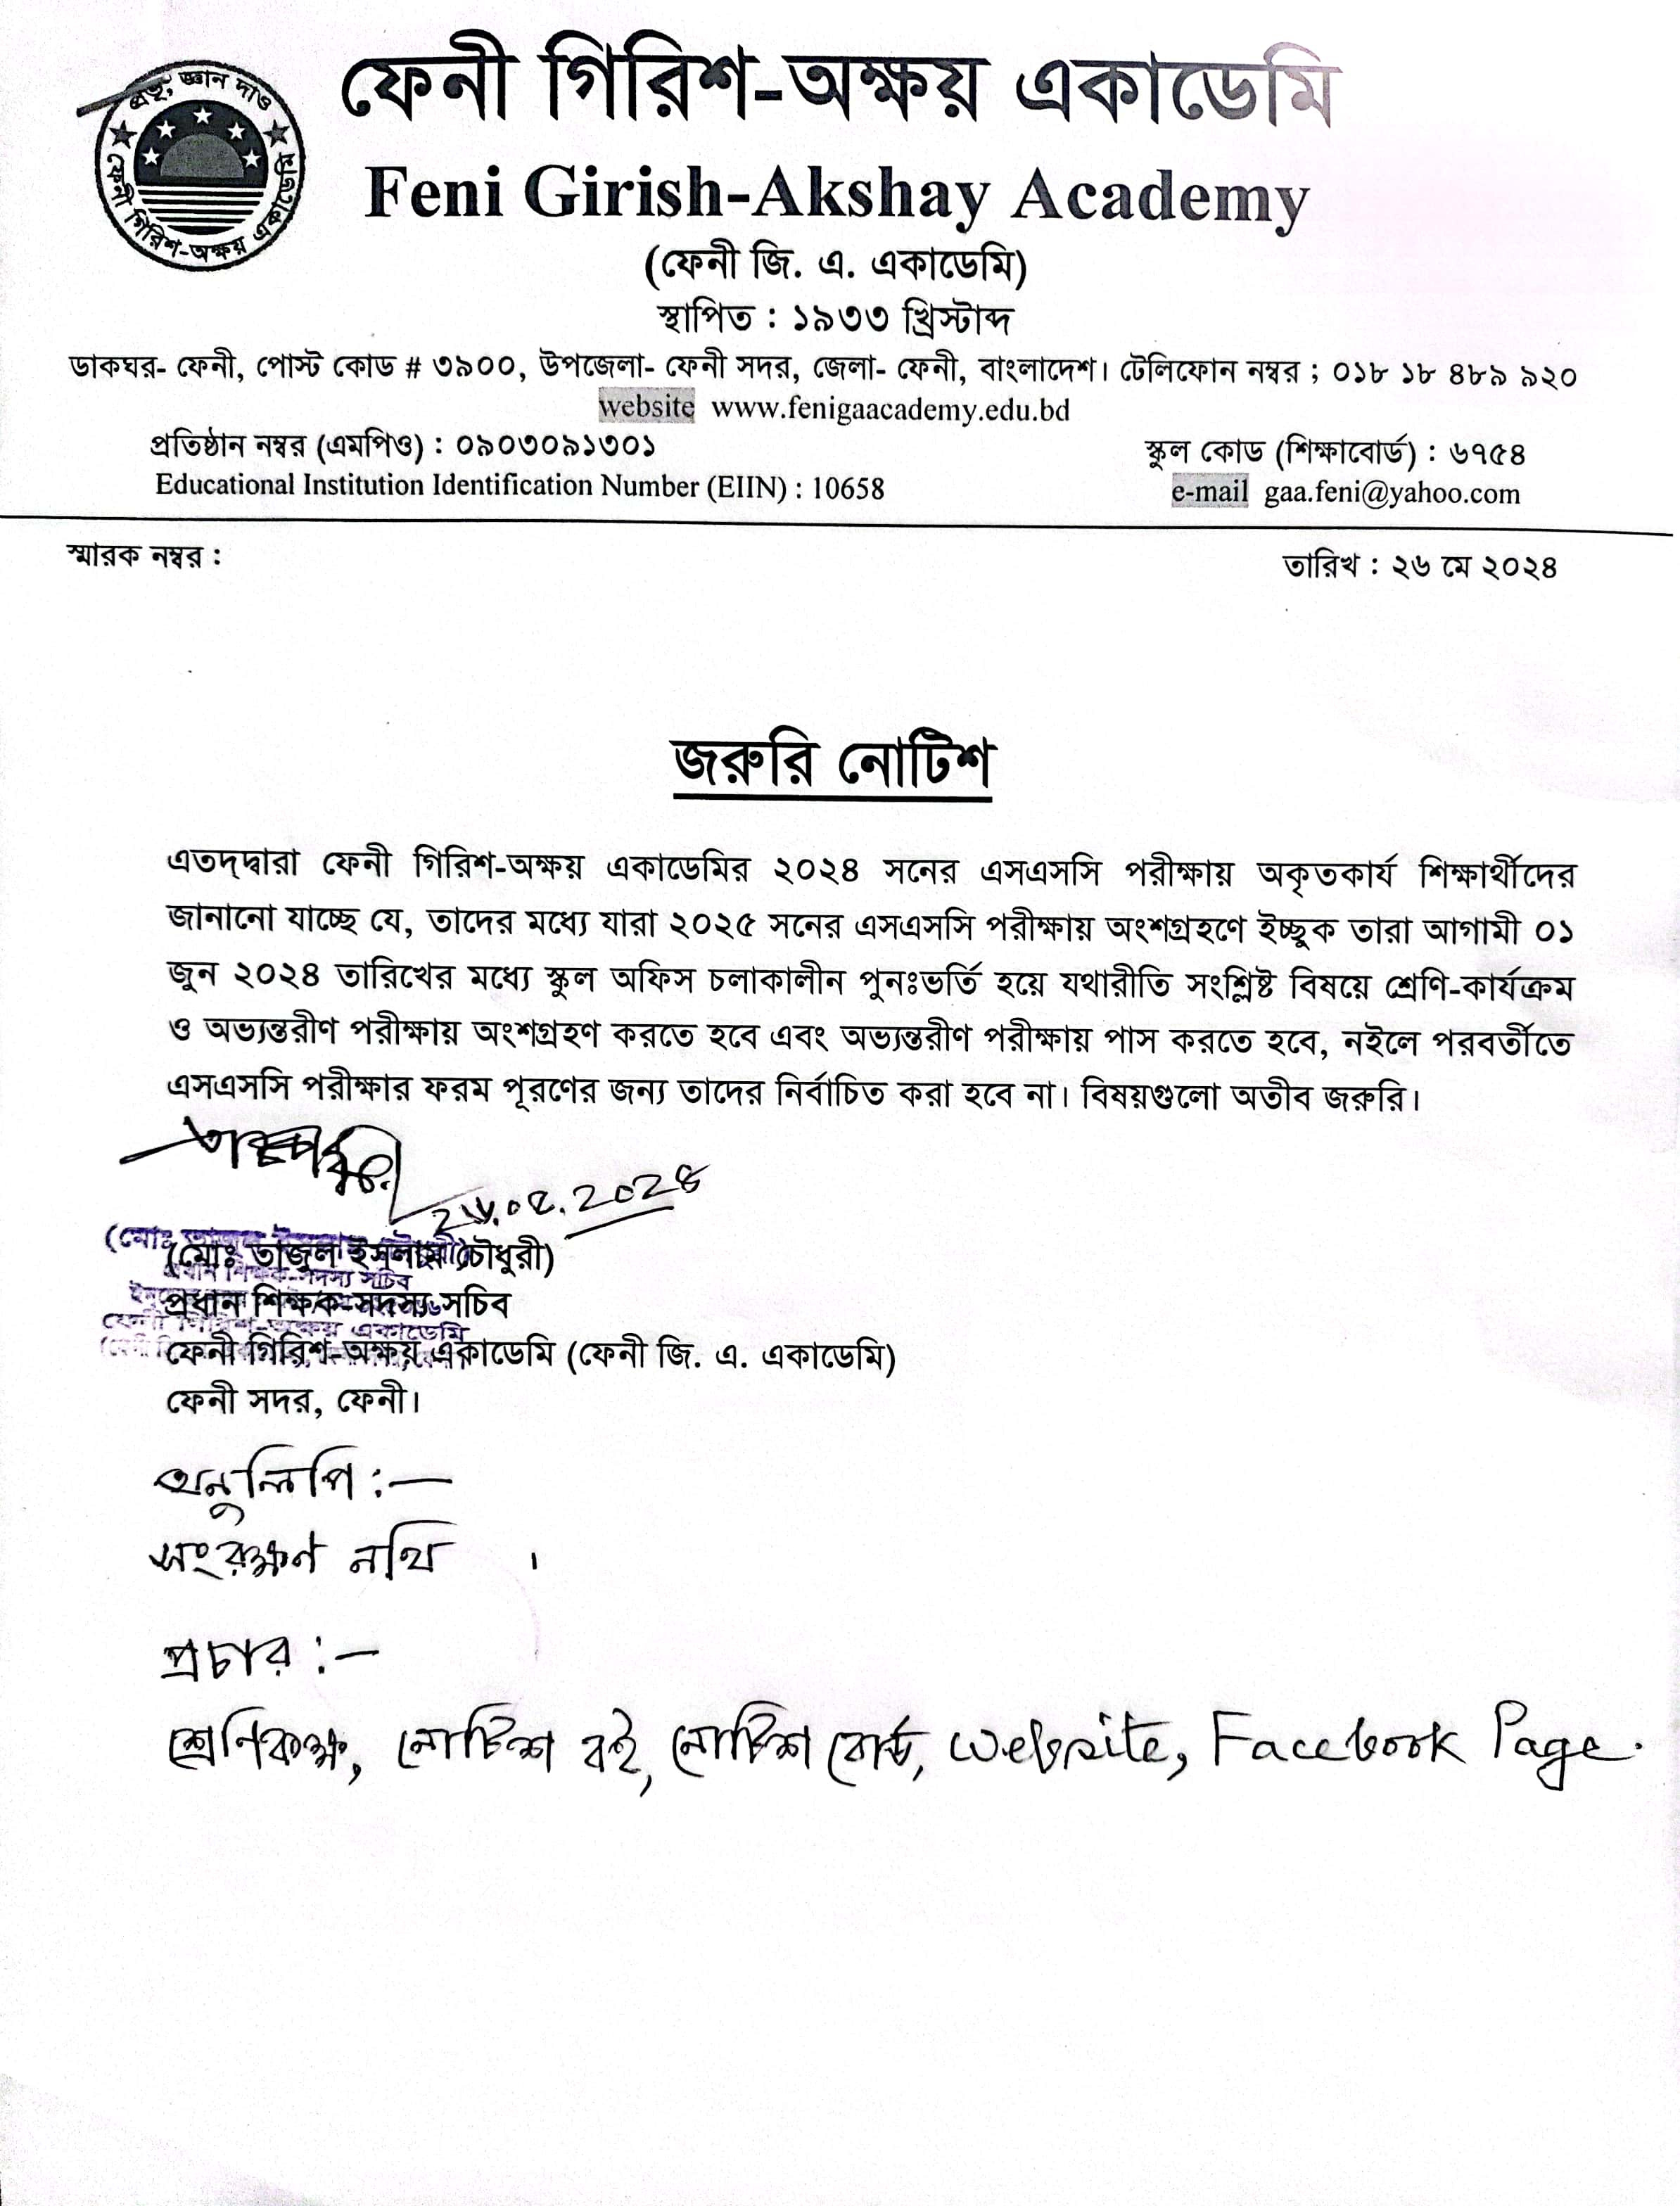 প্রভু, জ্ঞান দাও
ফেনী গিরিশ-অক্ষয় একাডেমি
ফেনী গিরিশ-অক্ষয় একাডেমি
Feni Girish-Akshay Academy
(ফেনী জি. এ. একাডেমি)
স্থাপিত : ১৯৩৩ খ্রিস্টাব্দ
ডাকঘর- ফেনী, পোস্ট কোড # ৩৯০০, উপজেলা- ফেনী সদর, জেলা- ফেনী, বাংলাদেশ। টেলিফোন নম্বর ; ০১৮ ১৮ ৪৮৯ ৯২০
website www.fenigaacademy.edu.bd
প্রতিষ্ঠান নম্বর (এমপিও) : ০৯০৩০৯১৩০১ স্কুল কোড (শিক্ষাবোর্ড) : ৬৭৫৪
Educational Institution Identification Number (EIIN) : 10658 e-mail gaa.feni@yahoo.com
স্মারক নম্বর : তারিখ : ২৬ মে ২০২৪
জরুরি নোটিশ
এতদ্দ্বারা ফেনী গিরিশ-অক্ষয় একাডেমির ২০২৪ সনের এসএসসি পরীক্ষায় অকৃতকার্য শিক্ষার্থীদের
জানানো যাচ্ছে যে, তাদের মধ্যে যারা ২০২৫ সনের এসএসসি পরীক্ষায় অংশগ্রহণে ইচ্ছুক তারা আগামী ০১
জুন ২০২৪ তারিখের মধ্যে স্কুল অফিস চলাকালীন পুনঃভর্তি হয়ে যথারীতি সংশ্লিষ্ট বিষয়ে শ্রেণি-কার্যক্রম
ও অভ্যন্তরীণ পরীক্ষায় অংশগ্রহণ করতে হবে এবং অভ্যন্তরীণ পরীক্ষায় পাস করতে হবে, নইলে পরবর্তীতে
এসএসসি পরীক্ষার ফরম পূরণের জন্য তাদের নির্বাচিত করা হবে না। বিষয়গুলো অতীব জরুরি।
২৬.০৫.২০২৪
(মোঃ তাজুল ইসলাম চৌধুরী)
প্রধান শিক্ষক-সদস্য সচিব
ফেনী গিরিশ-অক্ষয় একাডেমি (ফেনী জি. এ. একাডেমি)
ফেনী সদর, ফেনী।
অনুলিপি :—
সংরক্ষণ নথি ।
প্রচার :—
শ্রেণিকক্ষ, নোটিশ বই, নোটিশ বোর্ড, website, Facebook Page.